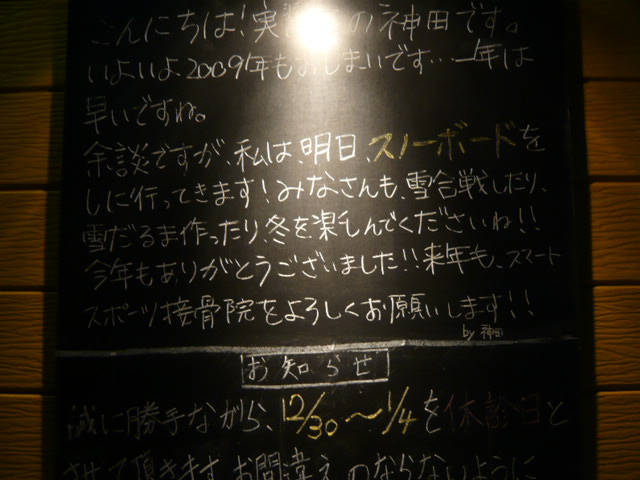 こんにちは!実の神田です。
いよいよ2009年もおしまいです…一年は
早いですね。
余談ですが、私は、明日、スノーボードを
しに行ってきます!みなさんも、雪合戦したり、
雪だるま作ったり、冬を楽しんでくださいね!!
今年もありがとうございました!!来年も、スマート
スポーツ接骨院をよろしくお願いします!!
by 神田
お知らせ
誠に勝手ながら、12/30〜1/4を休診日と
させて頂きます。お間違えのならないように